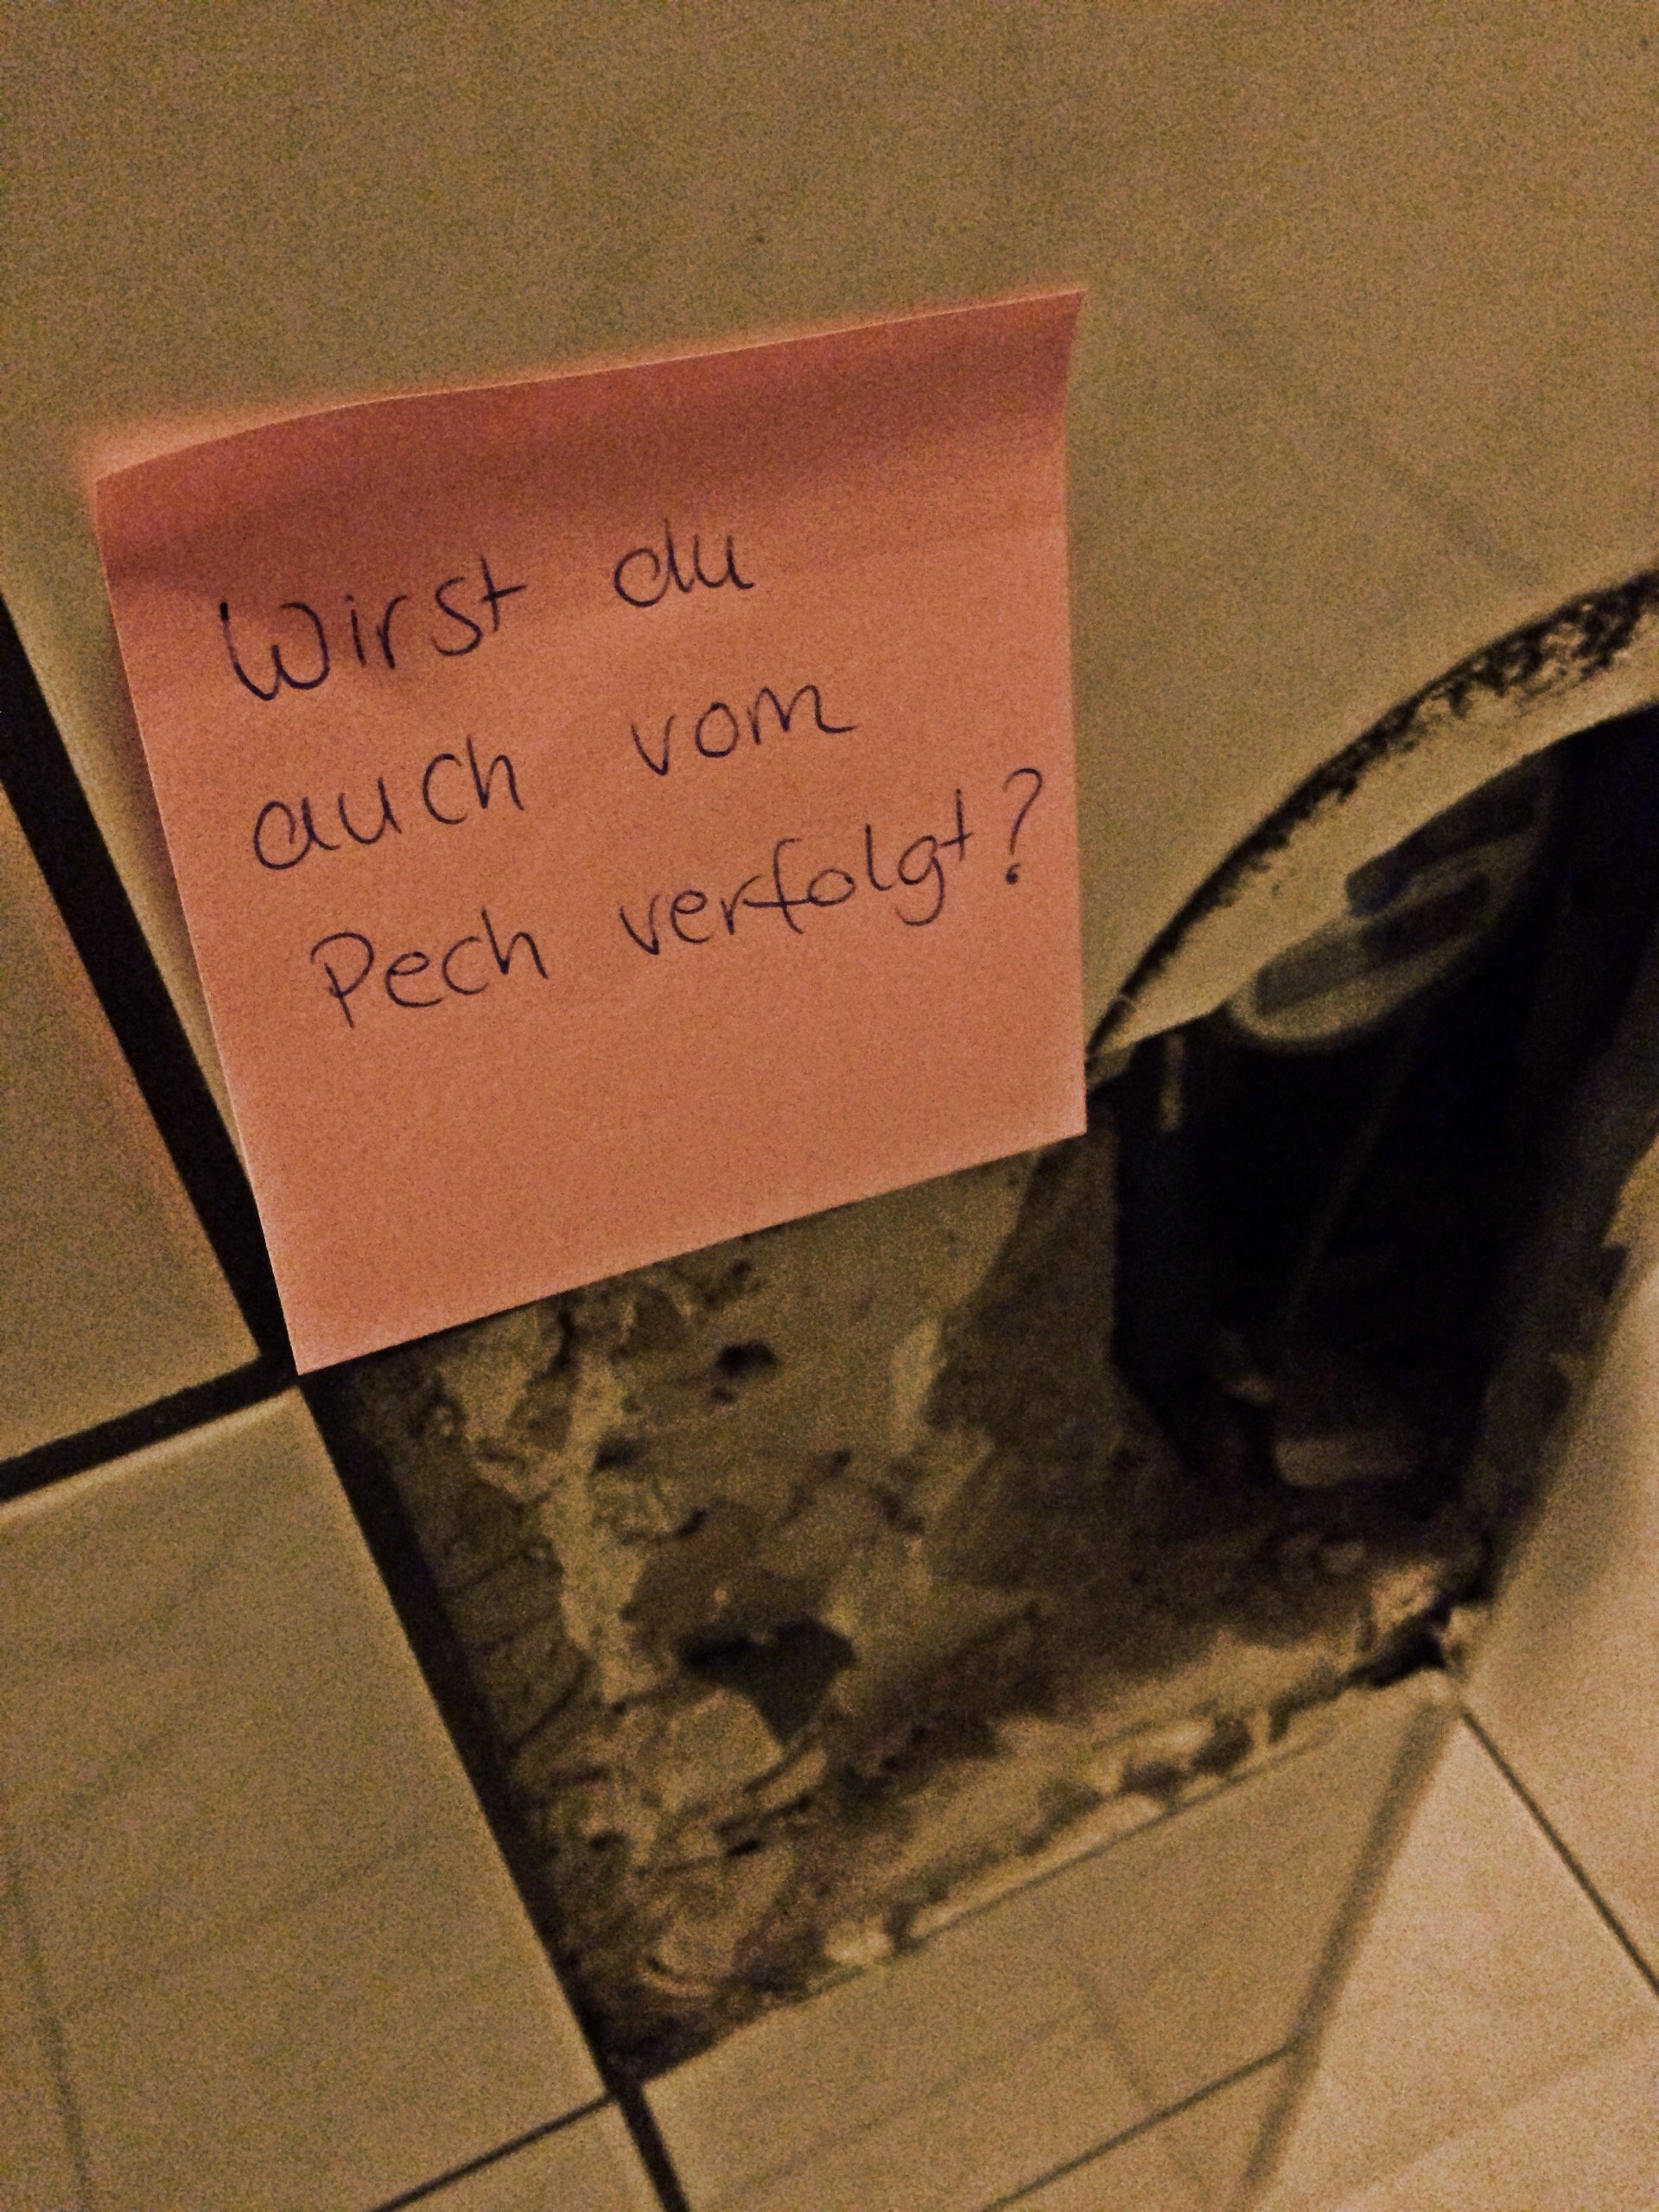 Wirst du
auch vom
Pech verfolgt?